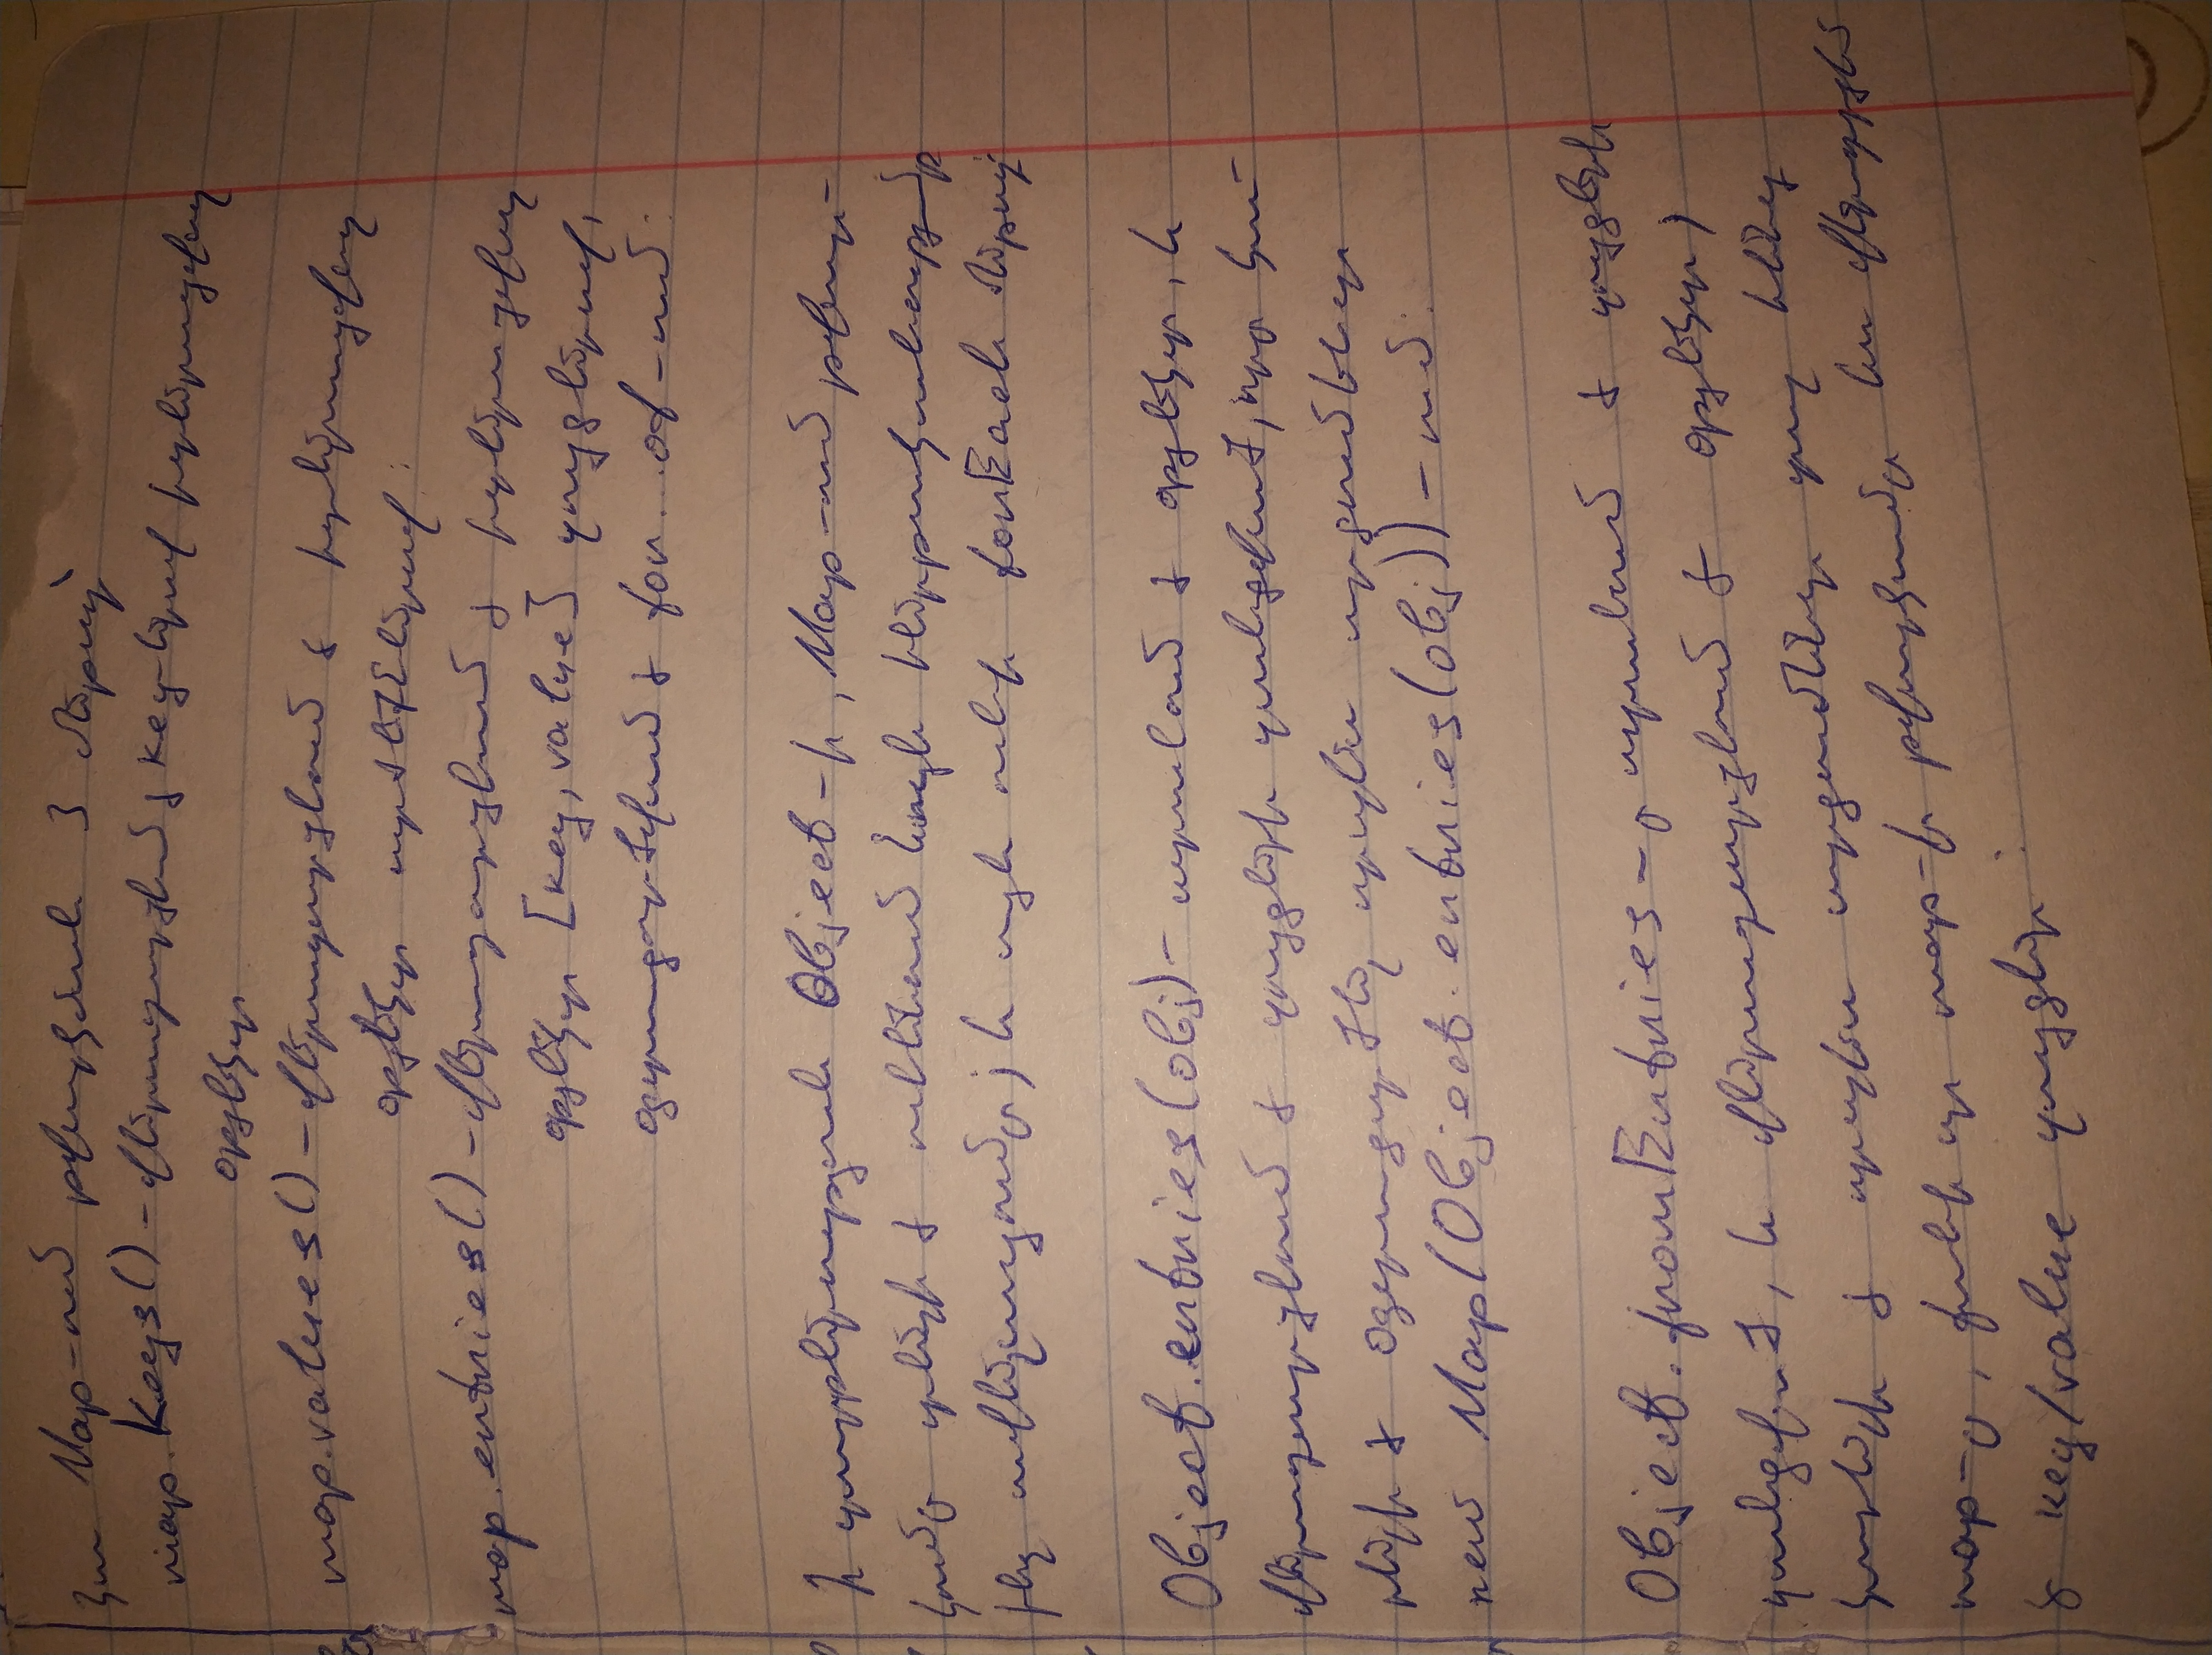 կա Map-ում թվարկման 3 մեթոդ՝
map.keys() - վերադարձնում է key-երով իտերացվող
օբյեկտ
map.values() - վերադարձնում է իտերացվող
օբյեկտ արժեքներով:
map.entries() - վերադարձնում է իտերացվող
օբյեկտ [key, value] զույգերով,
օգտագործվում է for...of-ում:
Ի տարբերություն Object-ի, Map-ում թվար-
կումը տեղի է ունենում նույն հերթականությամբ
ինչ ավելացումը, և այն ունի forEach մեթոդ՝
Object.entries(obj) - ստանում է օբյեկտ, և
վերադարձնում է զույգերի զանգված, որը կա-
րելի է օգտագործել որպես արգումենտ
new Map(Object.entries(obj))-ում:
Object.fromEntries-ը ստանում է զույգերի
զանգված, և վերադարձնում է օբյեկտ,
կարելի է որպես արգումենտ տալ հենց
map-ը, քանի որ map-ի թվարկումը նա վերադարձնում
է key/value զույգեր: